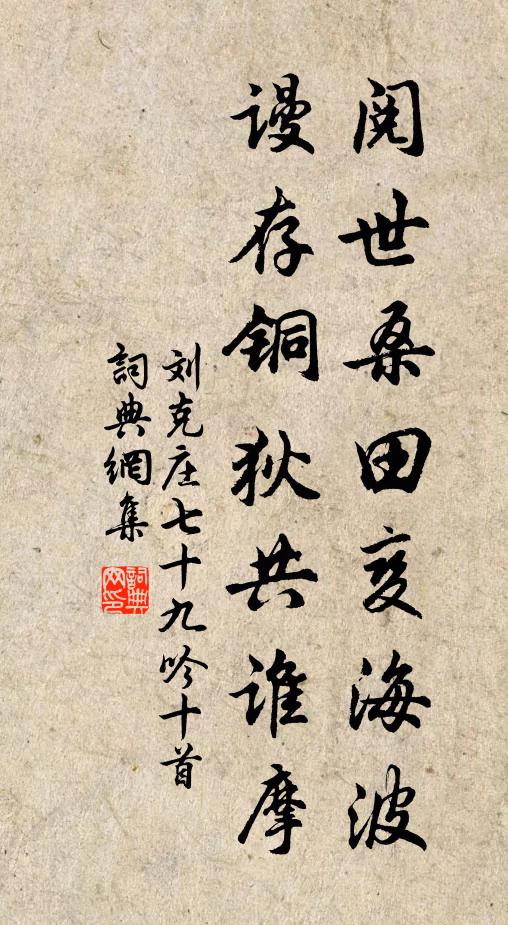 阅世桑田变海波
谩存铜狄共谁摩
刘克庄七十九吟十首
詞典網集
詞典网印